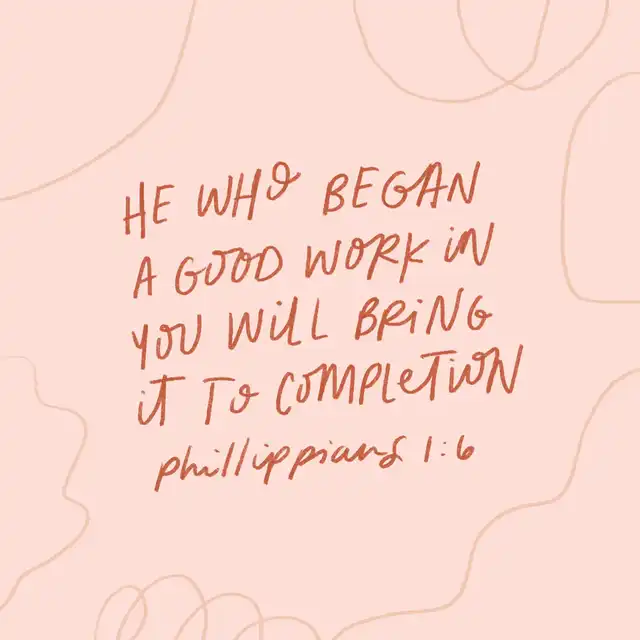 HE WHO BEGAN
A GOOD WORK iN
YOU WiLL BRiNG
iT TO COMPLETiON
phillippians 1:6